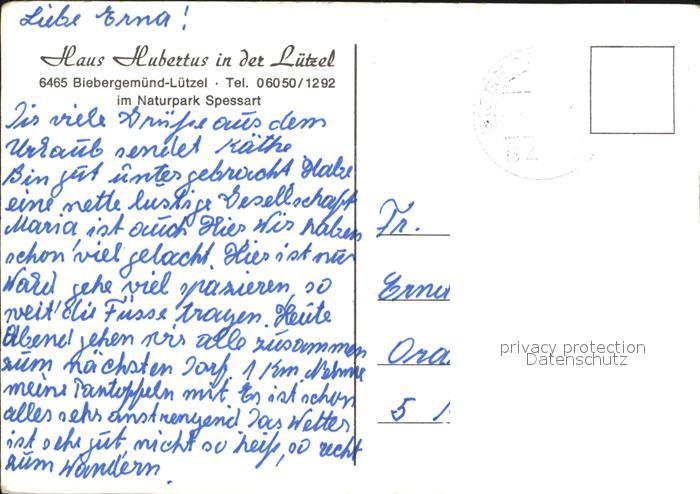 Liebe Erna!
Haus Hubertus in der Lützel
6465 Biebergemünd-Lützel · Tel. 06050/1292
im Naturpark Spessart
Dir viele Grüße aus dem
Urlaub sendet Käthe
Bin gut untergebracht Habe
eine nette lustige Gesellschaft
Maria ist auch Hier Wir haben
schon viel gelacht. Hier ist nur
Wald gehe viel spazieren, so
weit die Füsse tragen. Heute
Abend gehen wir alle zusammen
zum nächsten Dorf, 1 Km Nehme
meine Pantoffeln mit. Es ist schon
alles sehr anstrengend Das Wetter
ist sehr gut, nicht so heiß, so recht
zum Wandern.
Fr.
Erna
Ora
5
privacy protection
Datenschutz